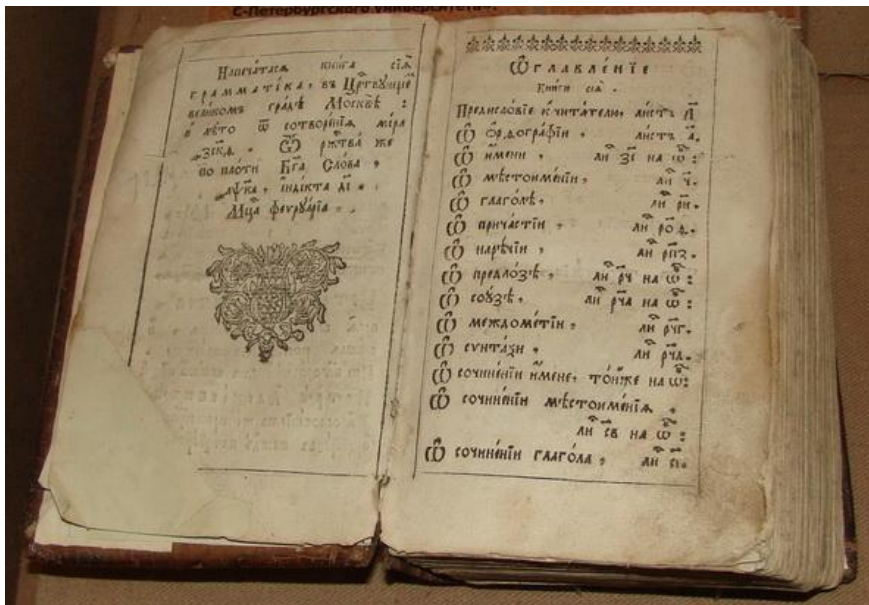 С-Петербургского университета
Напечатася книга сїѧ̀
грамматїка, въ Црⷭ҇твующеⷨ҇
великомъ градѣ Москвѣ :
в лѣто ѿ сотворенїѧ мїра
Ѿ ржⷭ҇тва́ же
по плоти Бг҃а Сло́ва ,
҂аѱка , їндїкта д҃ї .
Мцⷭ҇а феврꙋа́рїа .
Ѡ҆главле́нїе
Книги сїѧ̀ .
Предисло́вїе к̾ чита́телю, ли́стъ а҃
Ѽ ѻ҆рѳогра́фїи , ли́стъ а҃.
Ѽ и҆́мени , ли ѯ҃і на ѡ҆б :
Ѽ мѣстоиме́нїи , ли ч҃.
Ѽ глаго́лѣ , ли рн҃.
Ѽ прича́стїи , ли ро҃д.
Ѽ нарѣ́чїи , ли рп҃з.
Ѽ предло́зѣ , ли рч҃ на ѡ҆б :
Ѽ сою́зѣ , ли рч҃а на ѡ҆б :
Ѽ междоме́тїи , ли рч҃г.
Ѽ сѵнтаѯи , ли рч҃д.
Ѽ сочине́нїи и҆́мене , то́йже на ѡ҆б
Ѽ сочине́нїи мѣстоиме́нїѧ ,
ли с҃в на ѡ҆б :
Ѽ сочине́нїи глаго́ла , ли с҃і.